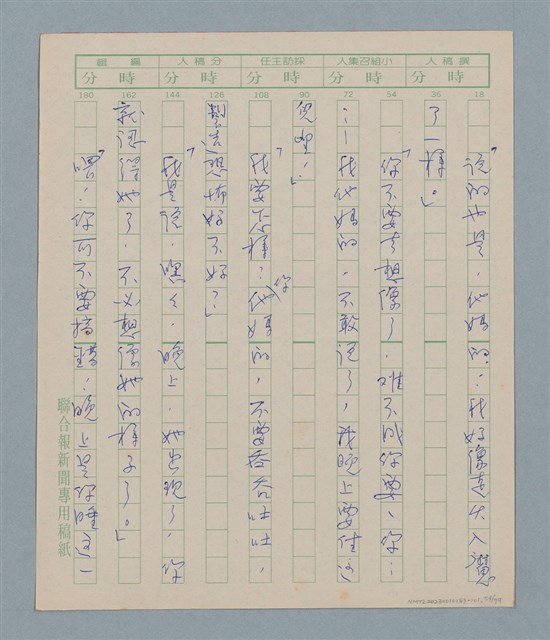 撰稿人
小組召集人
採訪主任
分稿人
編輯
時 分
時 分
時 分
時 分
時 分
18
36
54
72
90
108
126
144
162
180
「說的也是,他媽的…我好像走火入魔
了一樣。」
「你不要去想像了,難不成你要、你…
…!我他媽的,不敢說了,我晚上要住這
兒哩!」
「我要怎樣?你他媽的,不要吞吞吐吐,
製造恐怖好不好?」
「我是說,嘿嘿,晚上,她出現了,你
就認得她了,不必想像她的樣子了。」
「喂!你可不要搞錯!晚上是你睡這一
聯合報新聞專用稿紙